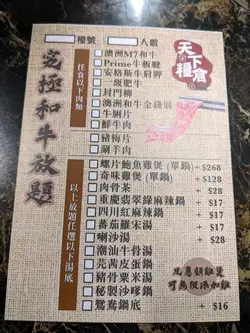 檯號 人數
天下糧倉
究極和牛放題
任食以下肉類
澳洲M7和牛
Prime牛板腱
安格斯牛肩胛
一級肥牛
封門柳
澳洲和牛金錢展
牛脷片
鮮牛肉
豬梅片
涮羊肉
以上放題任選以下湯底
螺片鮑魚雞煲 (單鍋) + $268
奇味雞煲 (單鍋) + $128
肉骨茶 + $28
重慶翡翠綠麻辣鍋 + $17
四川紅麻辣鍋 + $17
蕃茄羅宋湯 + $17
喇沙湯 + $28
潮汕牛骨湯
芫茜皮蛋鍋
豬骨粟米鍋
秘製沙嗲鍋
鴛鴦鍋底 + $16
凡惠顧雞煲
可無限添加雞